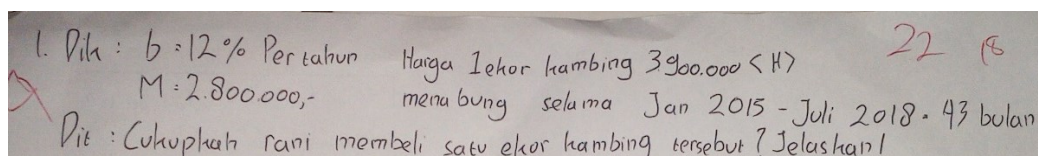 1. Dik : b : 12% Per tahun Harga 1 ekor kambing 3.900.000 <H> 22 18
M : 2.800.000,- menabung selama Jan 2015 - Juli 2018 = 43 bulan
Dit : Cukupkah rani membeli satu ekor kambing tersebut ? Jelaskan!